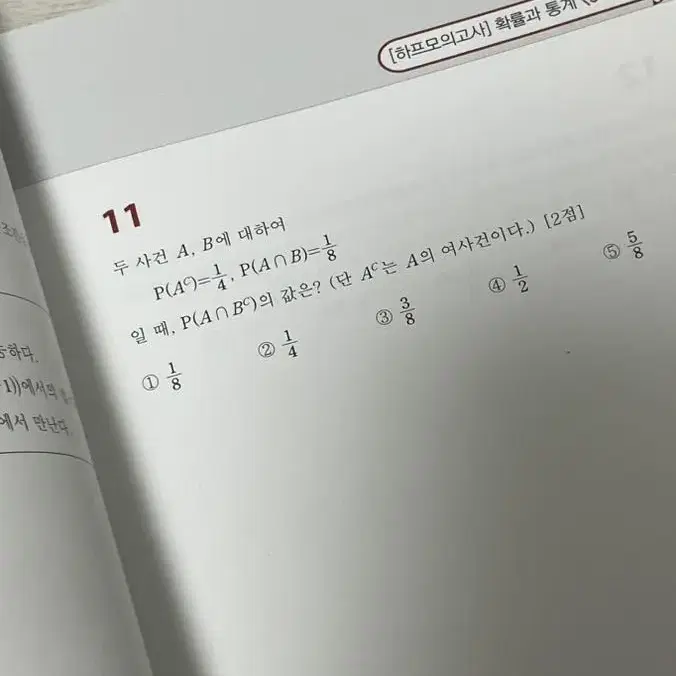 [하프모의고사] 확률과 통계
11
두 사건 A, B에 대하여
P(Aᶜ)=1/4, P(A∩B)=1/8
일 때, P(A∩Bᶜ)의 값은? (단 Aᶜ는 A의 여사건이다.) [2점]
① 1/8 ② 1/4 ③ 3/8 ④ 1/2 ⑤ 5/8
하다.
1))에서의
에서 만난다.